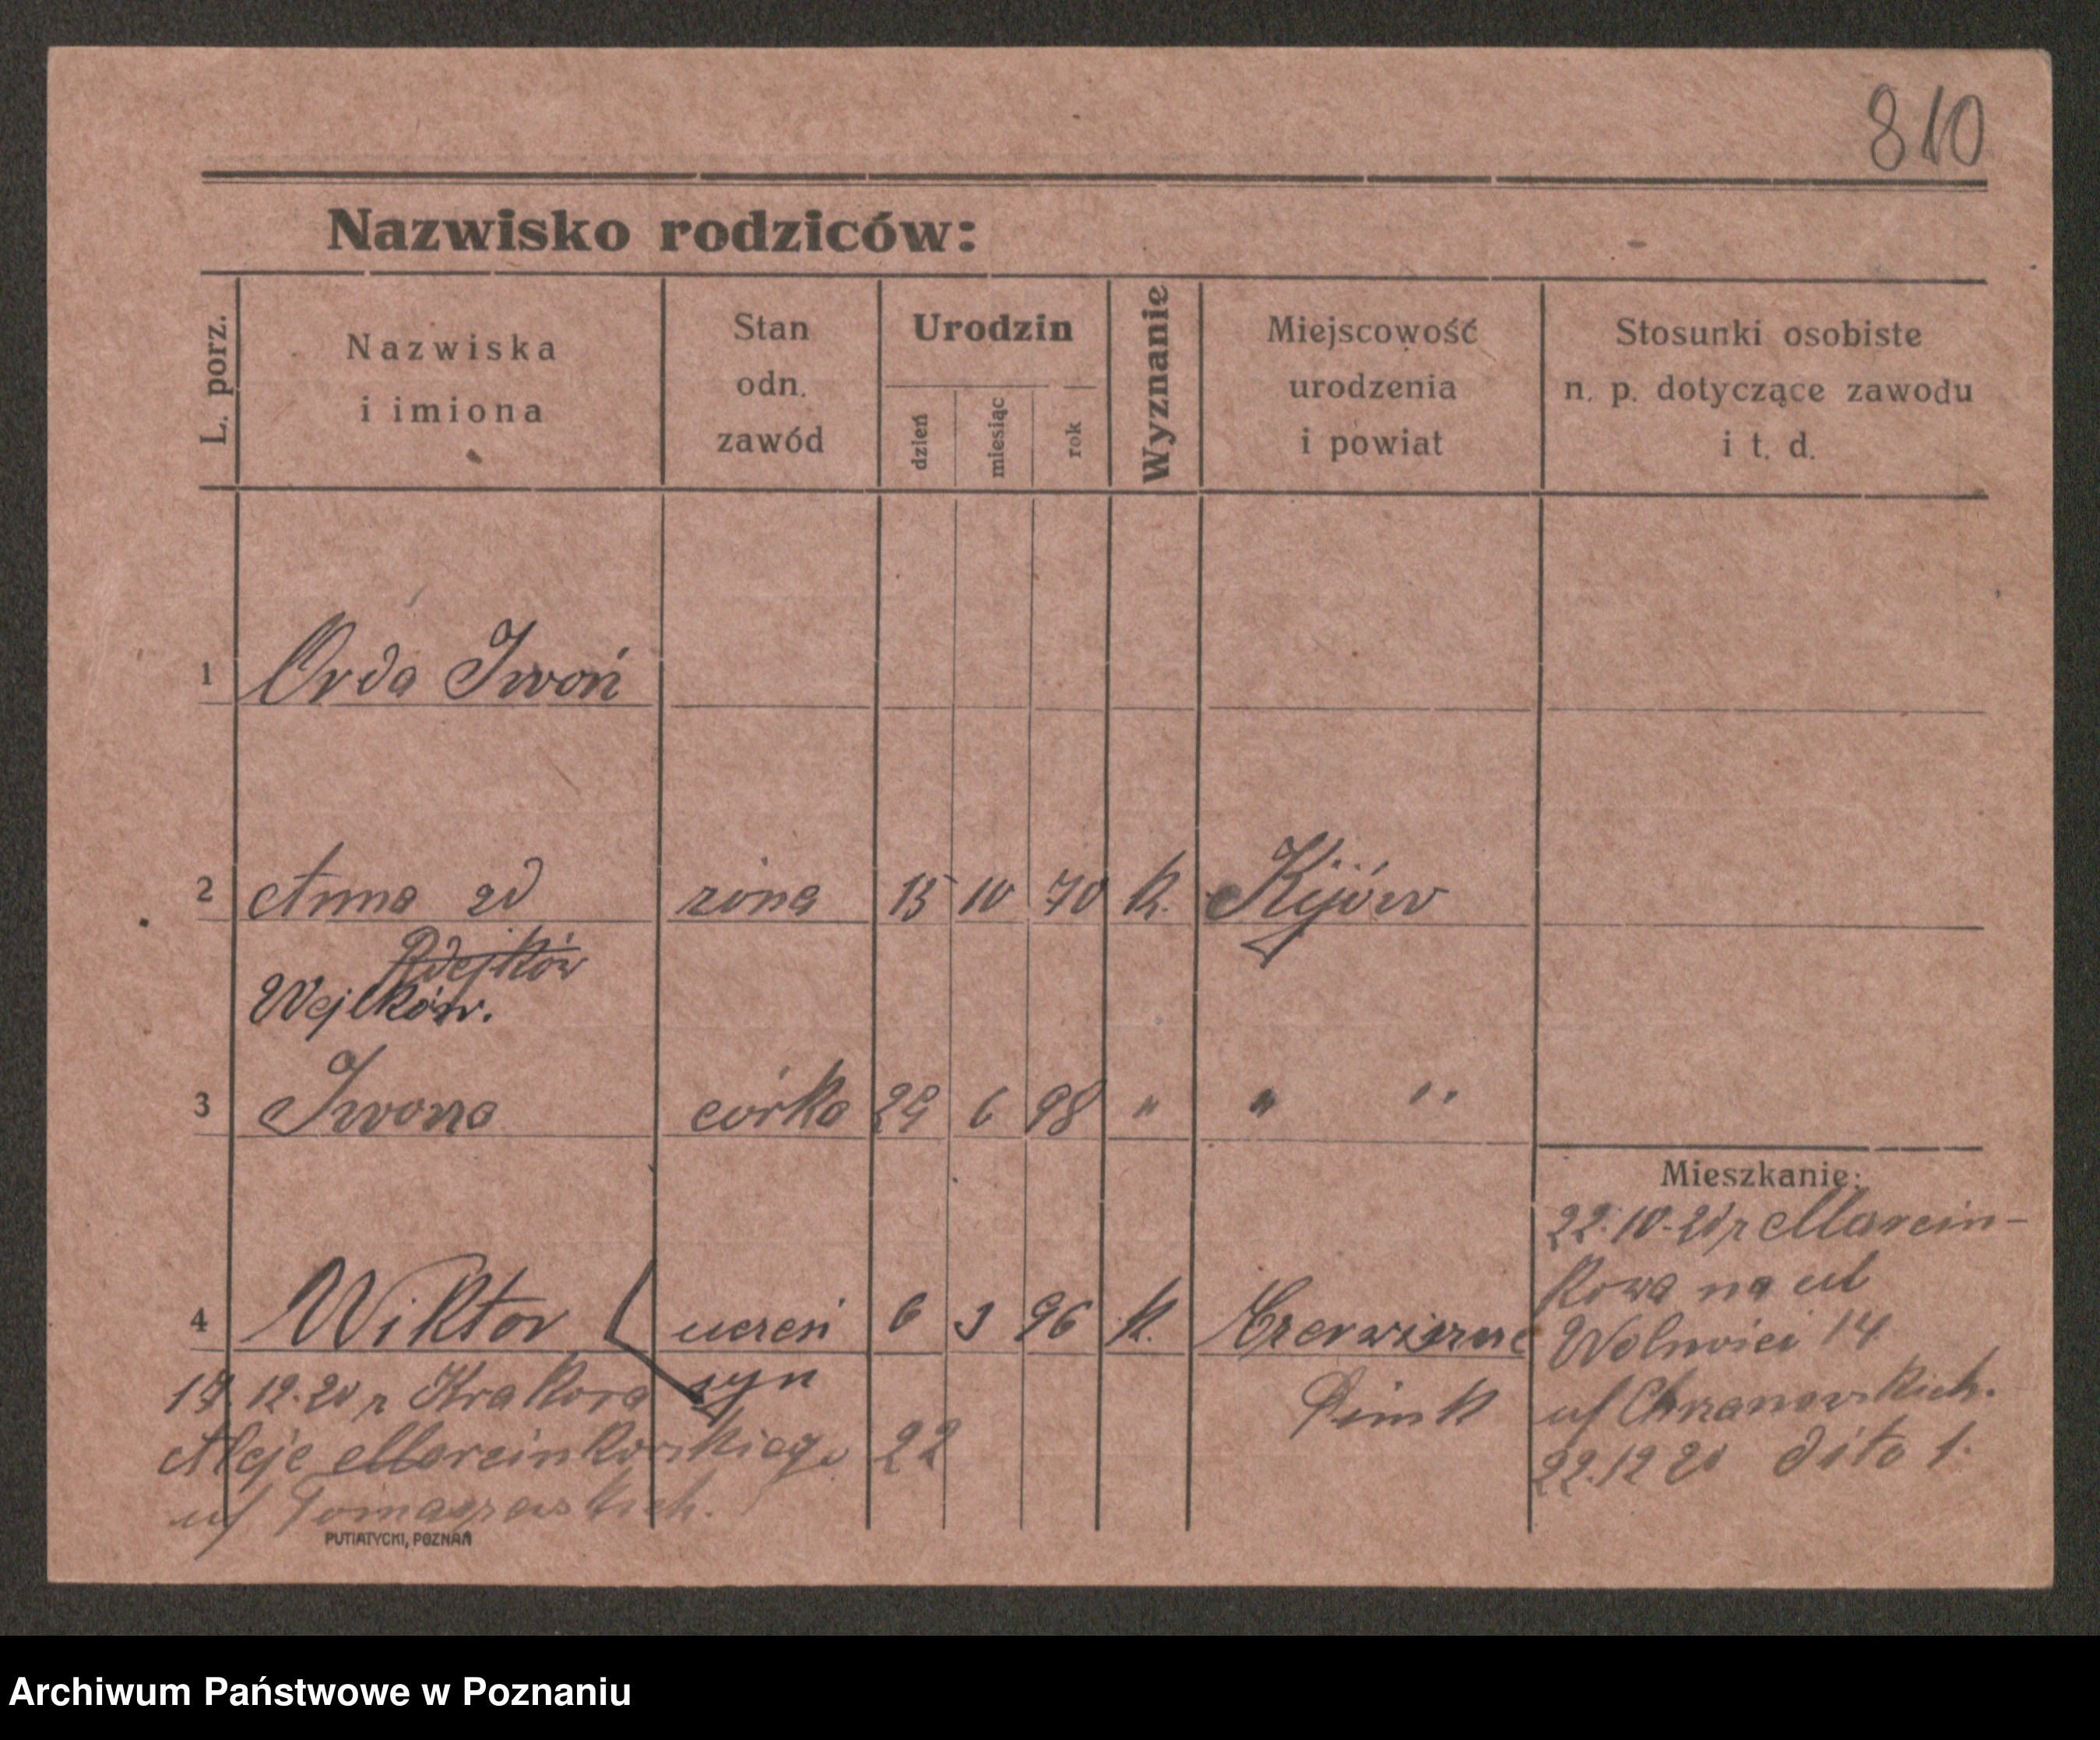 810
Nazwisko rodziców:
L. porz.
Nazwiska
i imiona
Stan
odn.
zawód
Urodzin
dzień
miesiąc
rok
Wyznanie
Miejscowość
urodzenia
i powiat
Stosunki osobiste
n. p. dotyczące zawodu
i t. d.
1 Orda Iwoń
2 Anna zd żona 15 10 70 k. Kijów
Wejków.
3 Iwona córka 29 6 98 " " "
4 Wiktor uczeń 6 3 96 k.
syn
Mieszkanie:
22.10.20 r Marcin-
kowa na ul
Wolności 14
u/ Chrzanowskich.
22.12 20 dito 1.
12.20 r Krakowa
Aleje Marcinkowskiego 22
u/
PUTIATYCKI, POZNAŃ
Archiwum Państwowe w Poznaniu